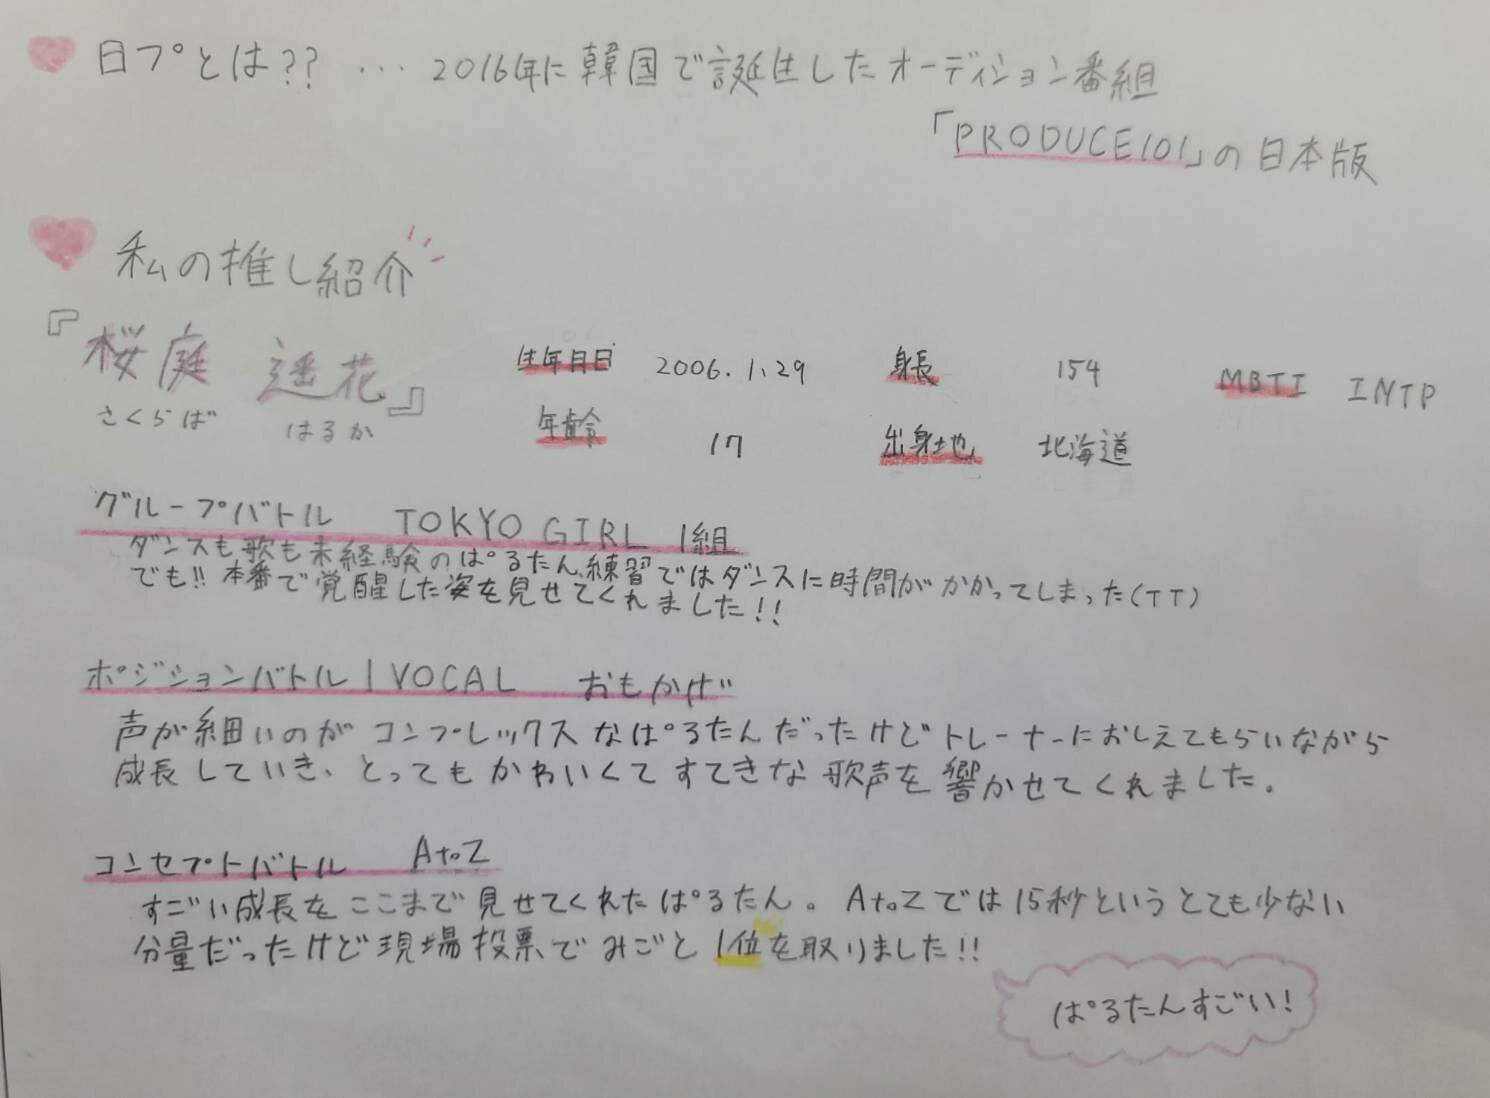 日プとは?? ... 2016年に韓国で誕生したオーディション番組
「PRODUCE101」の日本版
私の推し紹介
『桜庭 遥花』
さくらば はるか
生年月日 2006.1.29 身長 154 MBTI INTP
年齢 17 出身地 北海道
グループバトル TOKYO GIRL 1組
ダンスも歌も未経験のぱるたん、練習ではダンスに時間がかかってしまった(TT)
でも!!本番で覚醒した姿を見せてくれました!!
ポジションバトル | VOCAL おもかげ
声が細いのがコンプレックスなぱるたんだったけどトレーナーにおしえてもらいながら
成長していき、とってもかわいくてすてきな歌声を響かせてくれました。
コンセプトバトル AtoZ
すごい成長をここまで見せてくれたぱるたん。AtoZでは15秒というとても少ない
分量だったけど現場投票でみごと1位を取りました!!
ぱるたんすごい!